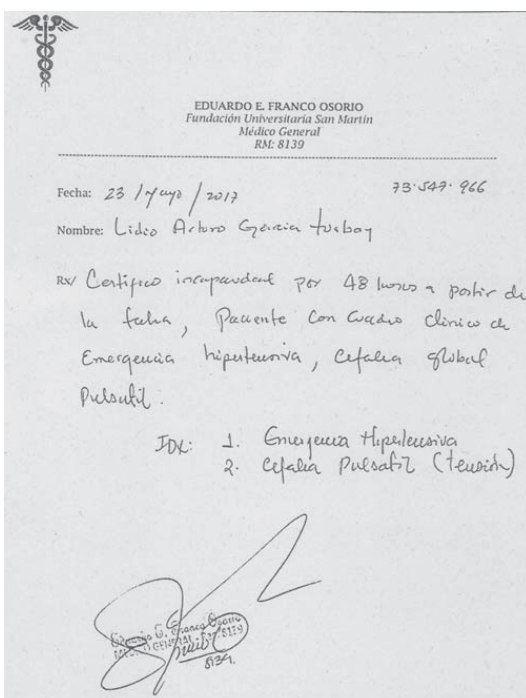 EDUARDO E. FRANCO OSORIO
Fundación Universitaria San Martín
Médico General
RM: 8139
73.547.966
Fecha: 23 / Mayo / 2017
Nombre: Lidio Arturo García turbay
Rx/ Certifico incapacidad por 48 horas a partir de
la fecha, Paciente con Cuadro Clínico de
Emergencia hipertensiva, Cefalea global
Pulsatil.
IDX: 1. Emergencia Hipertensiva
2. Cefalea Pulsatil (tensión)
Eduardo E. Franco Osorio
MEDICO GENERAL 8139
8139.